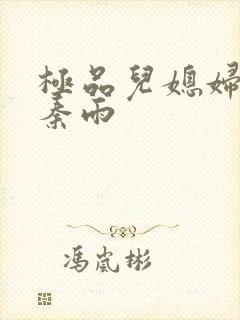 極品兒媳婦
秦雨
馮嵐彬